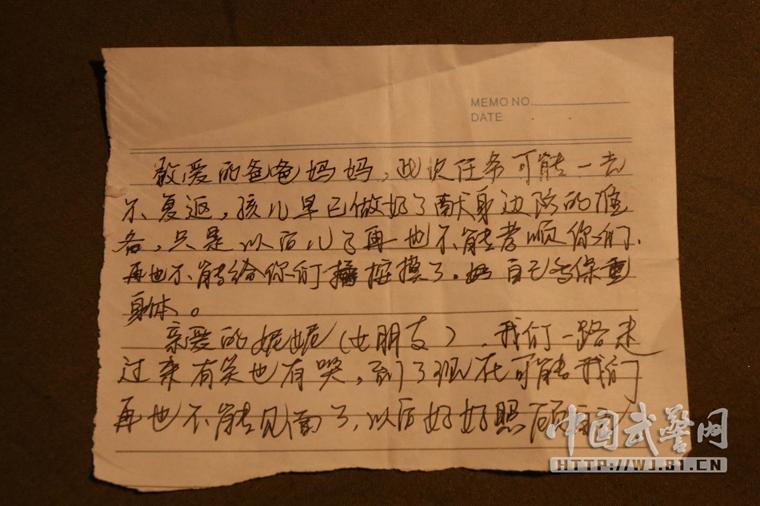 MEMO NO.
DATE
敬爱的爸爸妈妈,此次任务可能一去
不复返,孩儿早已做好了献身边防的准
备,只是以后儿子再也不能孝顺你们,
再也不能给你们按摸了。妈自己多保重
身体。
亲爱的妮妮(女朋友),我们一路走
过来有笑也有哭,到了现在可能我们
再也不能见面了,以后好好照顾自己
中国武警网
HTTP://WJ.81.CN